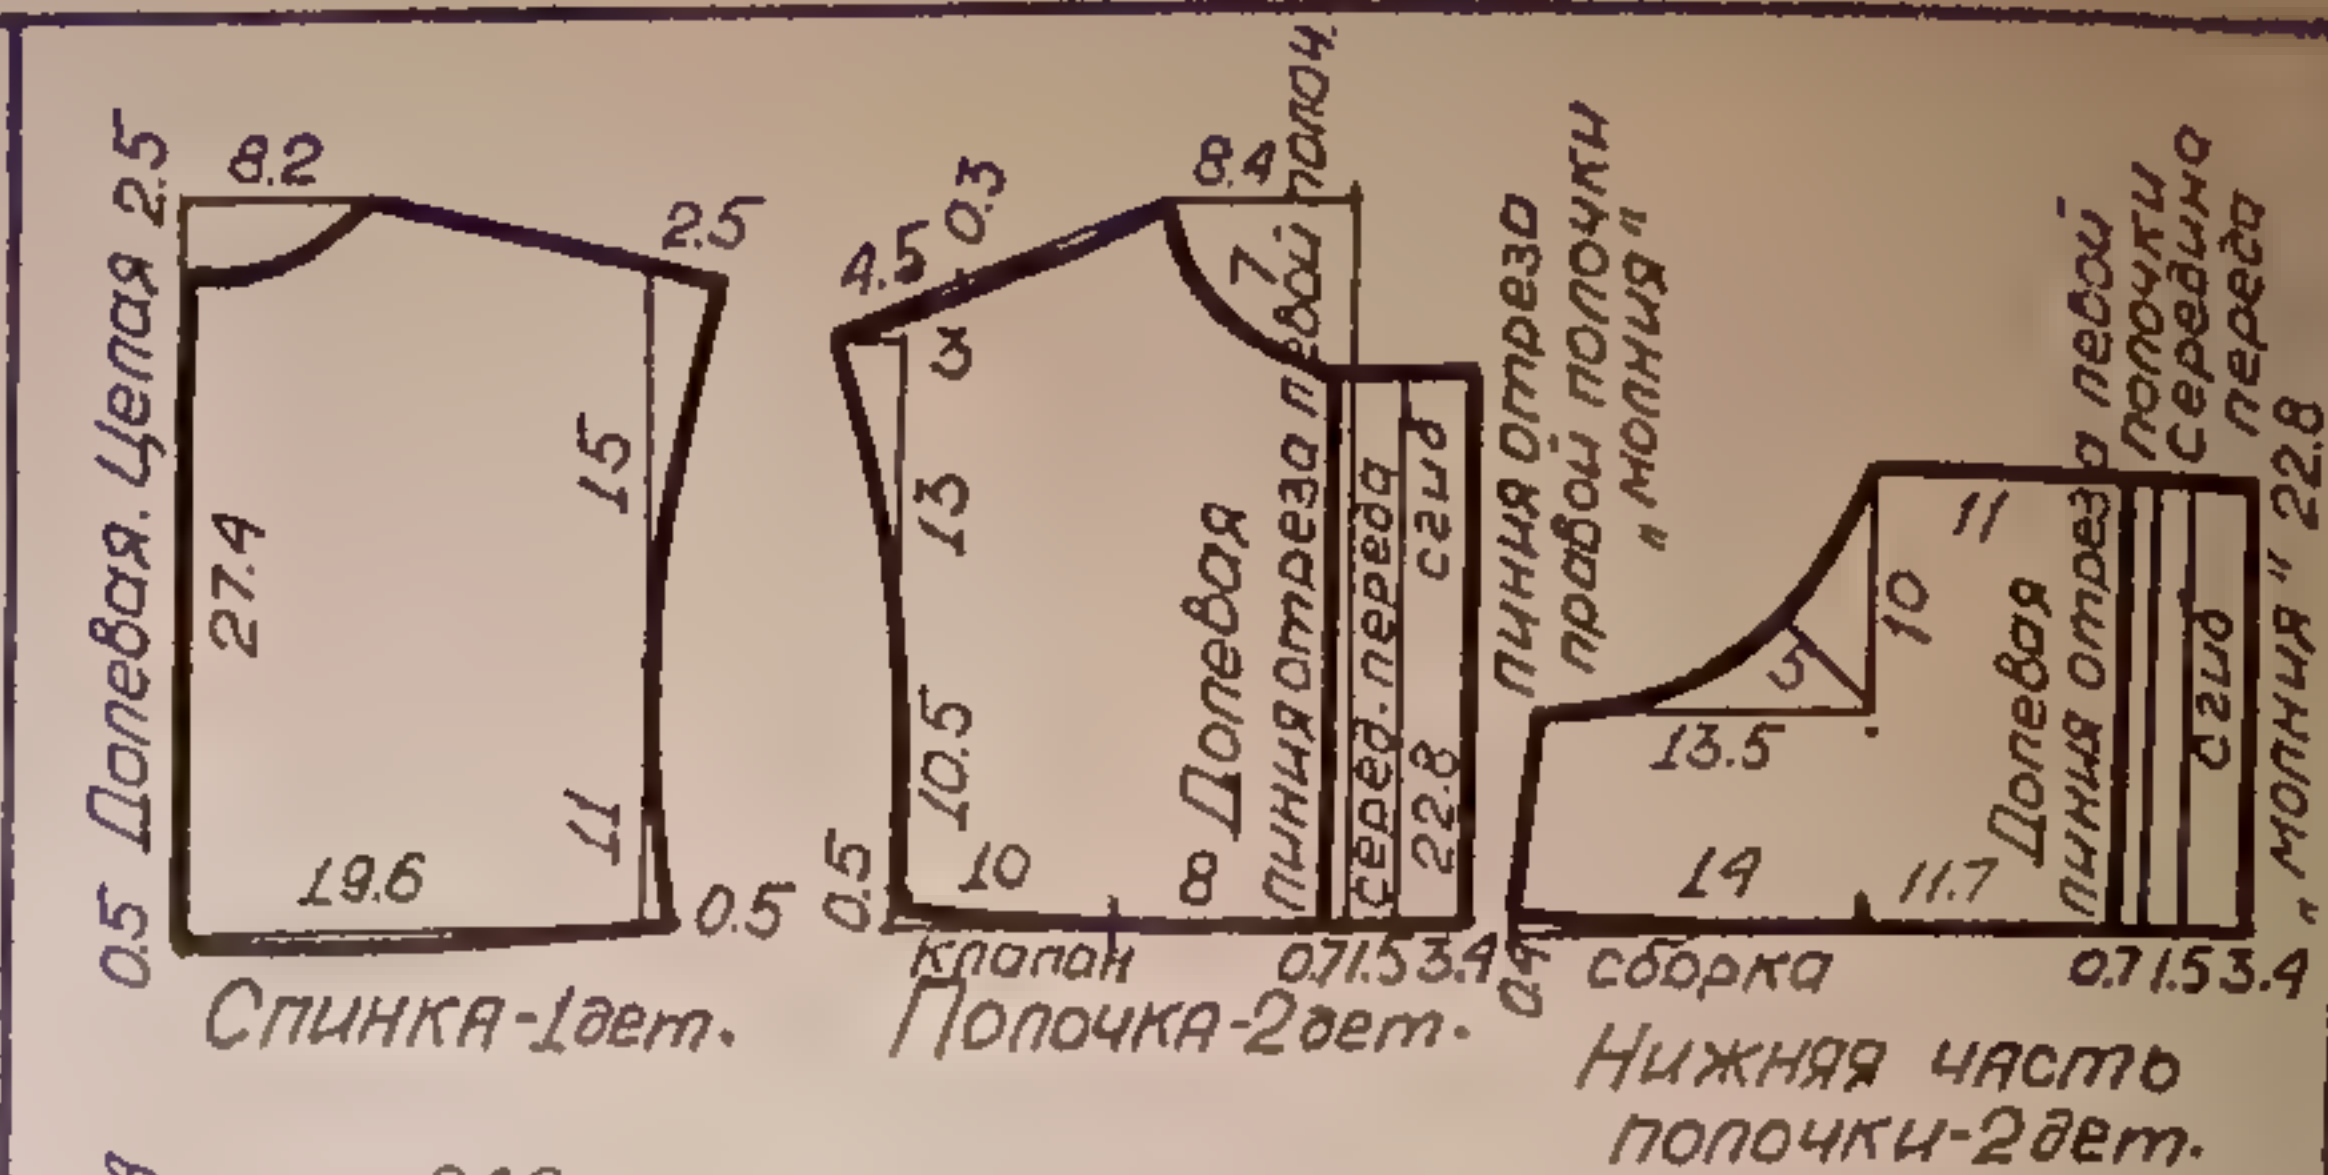 0.5 Долевая. Целая 2.5
8.2
2.5
27.4
15
11
19.6
0.5
Спинка-1дет.
4.5
0.3
8.4
7
3
13
10.5
0.5
10
8
Долевая
линия отреза левой полоч.
серед. переда
сгиб
22.8
клапан
0.7 1.5 3.4
Полочка-2дет.
линия отреза
правой полочки
„молния"
11
10
5
13.5
14
11.7
Долевая
линия отреза левой
полочки
середина
переда
сгиб
„молния" 22.8
сборка
0.7 1.5 3.4
Нижняя часть
полочки-2дет.